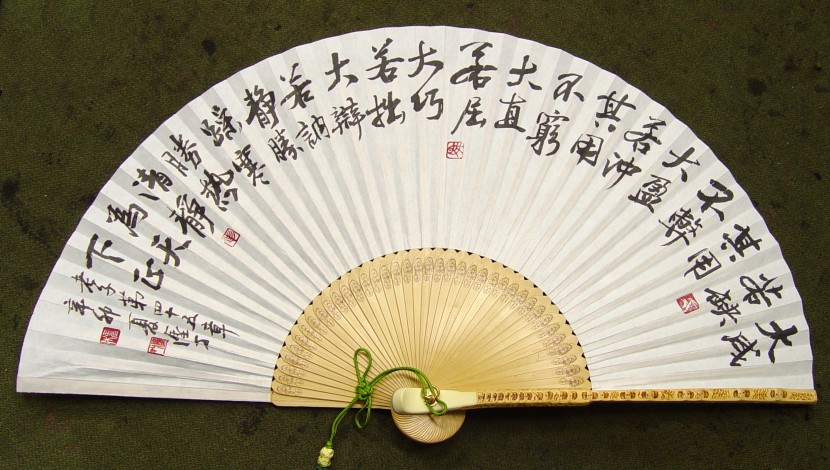 大成
若缺
其用
不弊
大盈
若冲
其用
不窮
大直
若屈
大巧
若拙
大辯
若訥
静勝
躁寒
勝熱
清静
為天
下正
老子第四十五章
辛卯夏